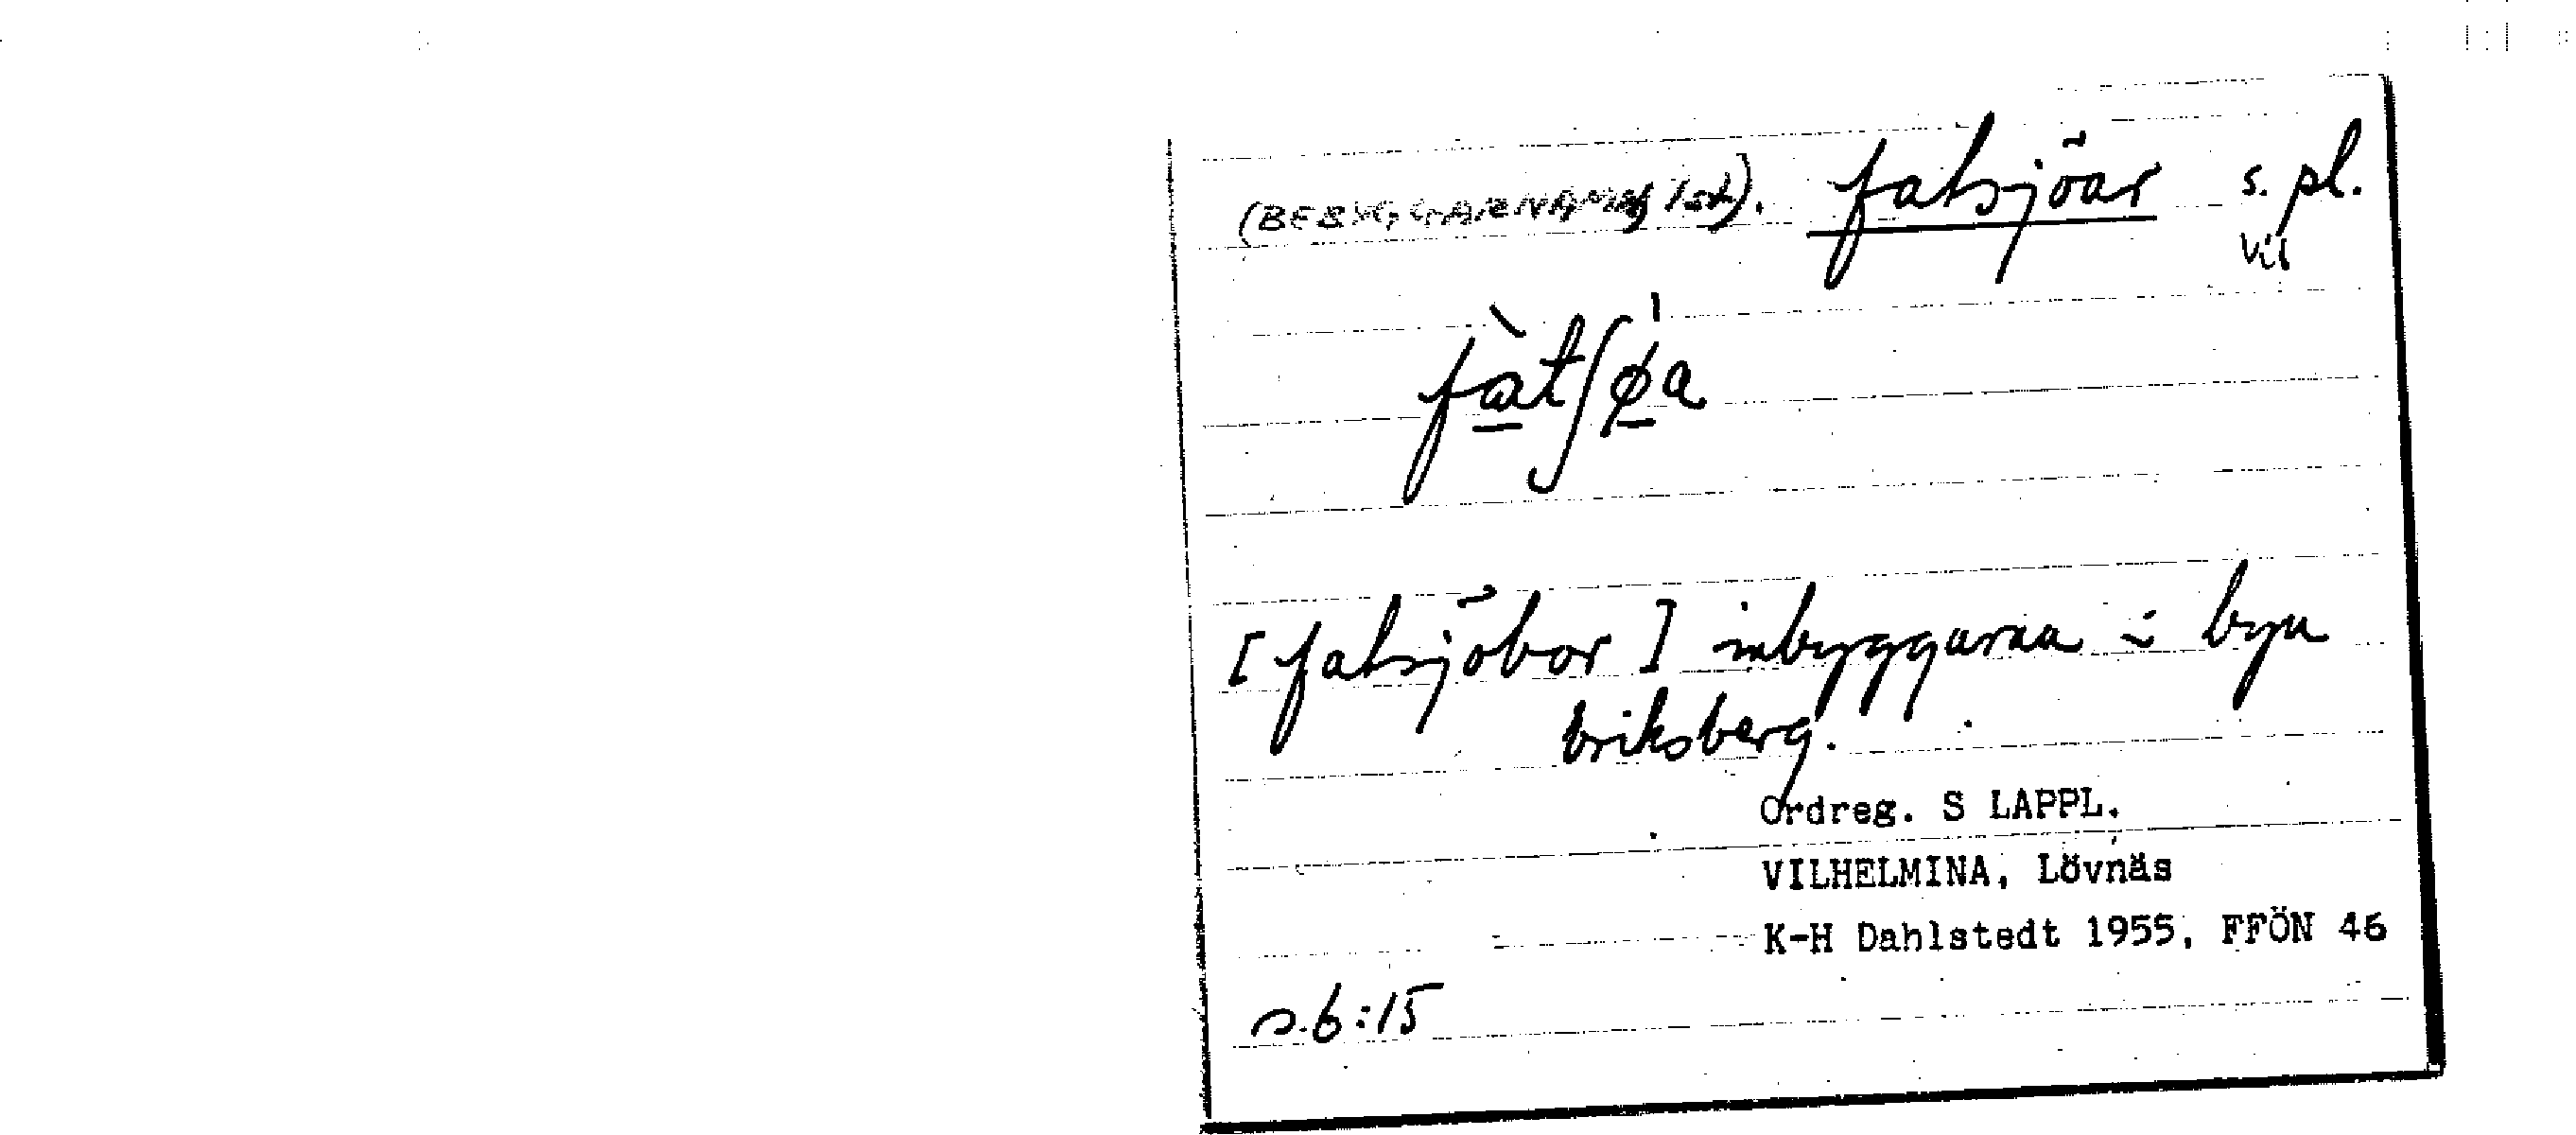 fatsjöar s. pl.
Vil
fàtʃø̀a
[fatsjöbor] inbyggarna i byn
Eriksberg.
Ordreg. S LAPPL.
VILHELMINA, Lövnäs
K-H Dahlstedt 1955, FFÖN 46
s.6:15